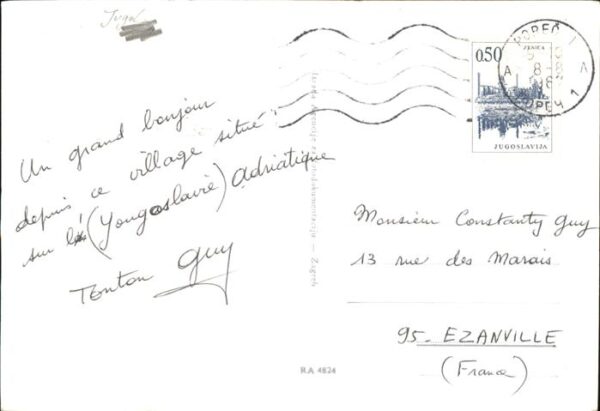 Un grand bonjour
depuis ce village situé
sur l' (Yougoslavie) Adriatique
Tonton Guy
0.50
ZENICA
JUGOSLAVIJA
POREČ 1
A A
Monsieur Constanty Guy
13 rue des Marais
95. EZANVILLE
(France)
Zagreb
RA 4824